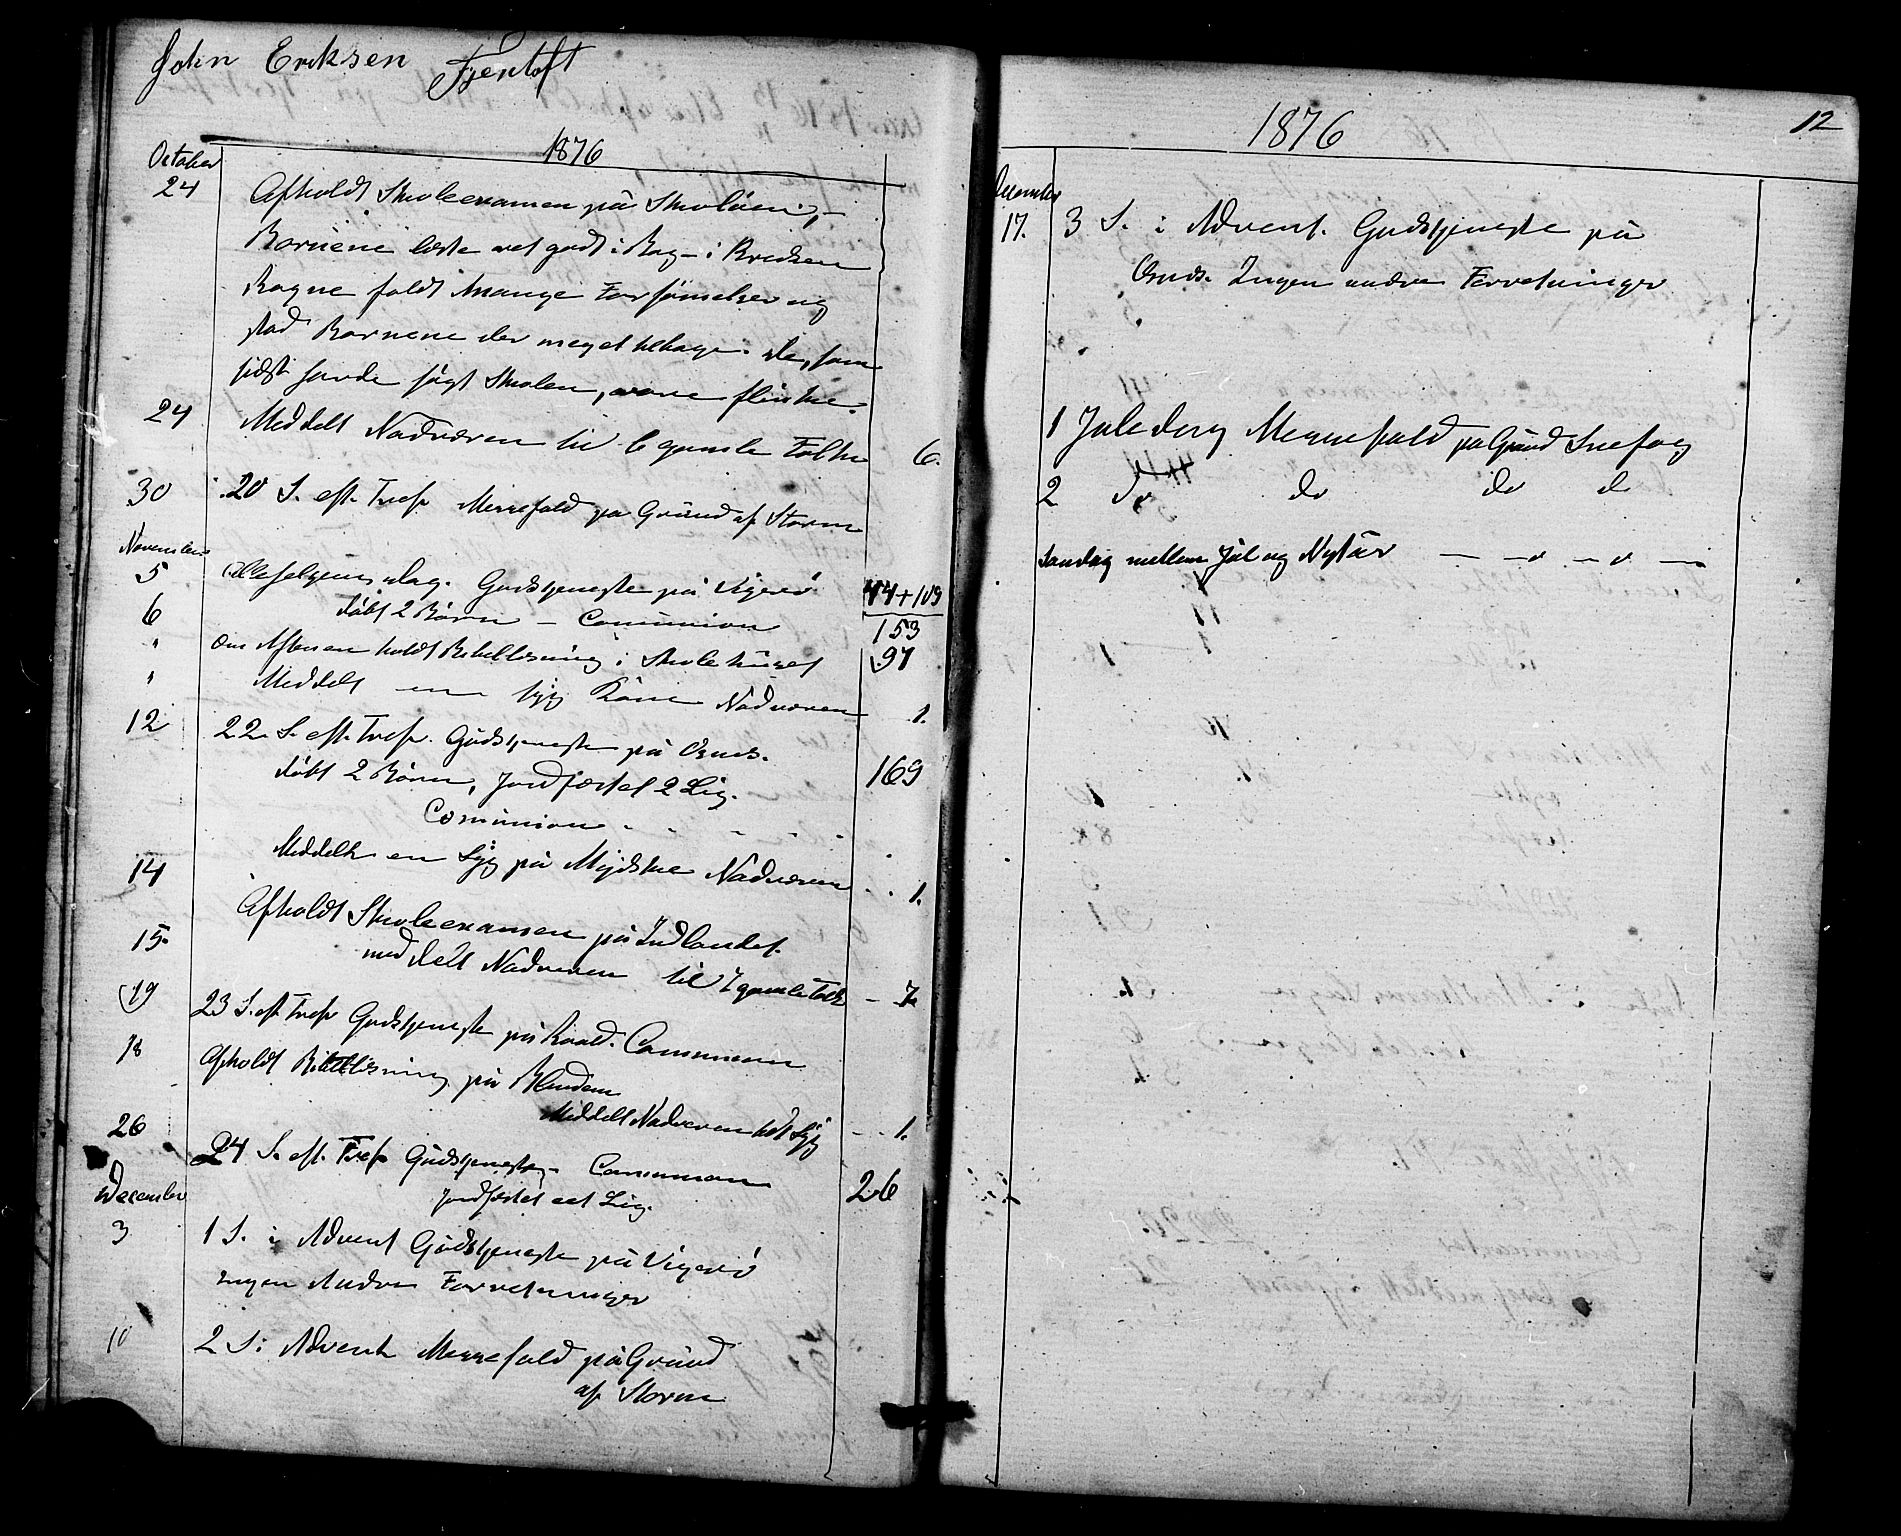 John Eriksen Fjertoft
1876
October
24 Afholdt Skoleexamen på Skuløen,
Børnene læste ret godt i Bog – i Kredsen
Rogne faldt mange Forsømelser og
stod Børnene der meget tilbage. De, som
sidst havde søgt Skolen, vare flinke.
24 Meddelt Nadveren til 6 gamle Folk 6.
30 20 S. eft. Tref. Messefald på Grund af Storm
November
5 Allehelgens dag. Gudstjeneste på Vigerø 44+109
6 døbt 2 Børn – Comunion 153
" om Aftenen holdt Bibellæsning i Skolehuset 97
" Meddelt en syg Kone Nadveren 1.
12 22 S. eft. Tref. Gudstjeneste på Osnes.
døbt 2 Børn, Jordfæstet 2 Lig. 169
Comunion
14 Meddelt en Syg på Myclebost Nadveren 1.
15 Afholdt Skoleexamen på Indlandet.
meddelt Nadveren til 7 gamle Folk – 7
19 23 S. eft Tref Gudstjeneste på Roald. Comunion
18 Afholdt Bibellæsning på Blindem
Meddelt Nadveren till Syg 1.
26 24 S. eft. Tref Gudstjeneste – Comunion
Jordfæstet eet Lig. 26
December
3 1 S. i Advent Gudstjeneste på Vigerø
ingen Andre Forretninger
10 2 S. i Advent Messefald på Grund
af Storm
12
1876
December
17. 3 S. i Advent. Gudstjeneste på
Osnes. Ingen andre Forretninger
1 Juledag Messefald på Grund Snefog
2 do do do d
Søndag mellem Jul og Nytår — — — —